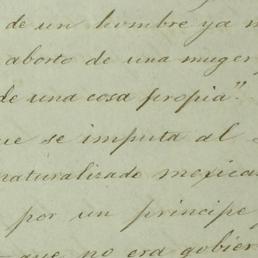 de un hombre ya m
aborto de una muger
de una cosa propia".
ue se imputa al
naturalizado mexica
por un principe
que no era gobier